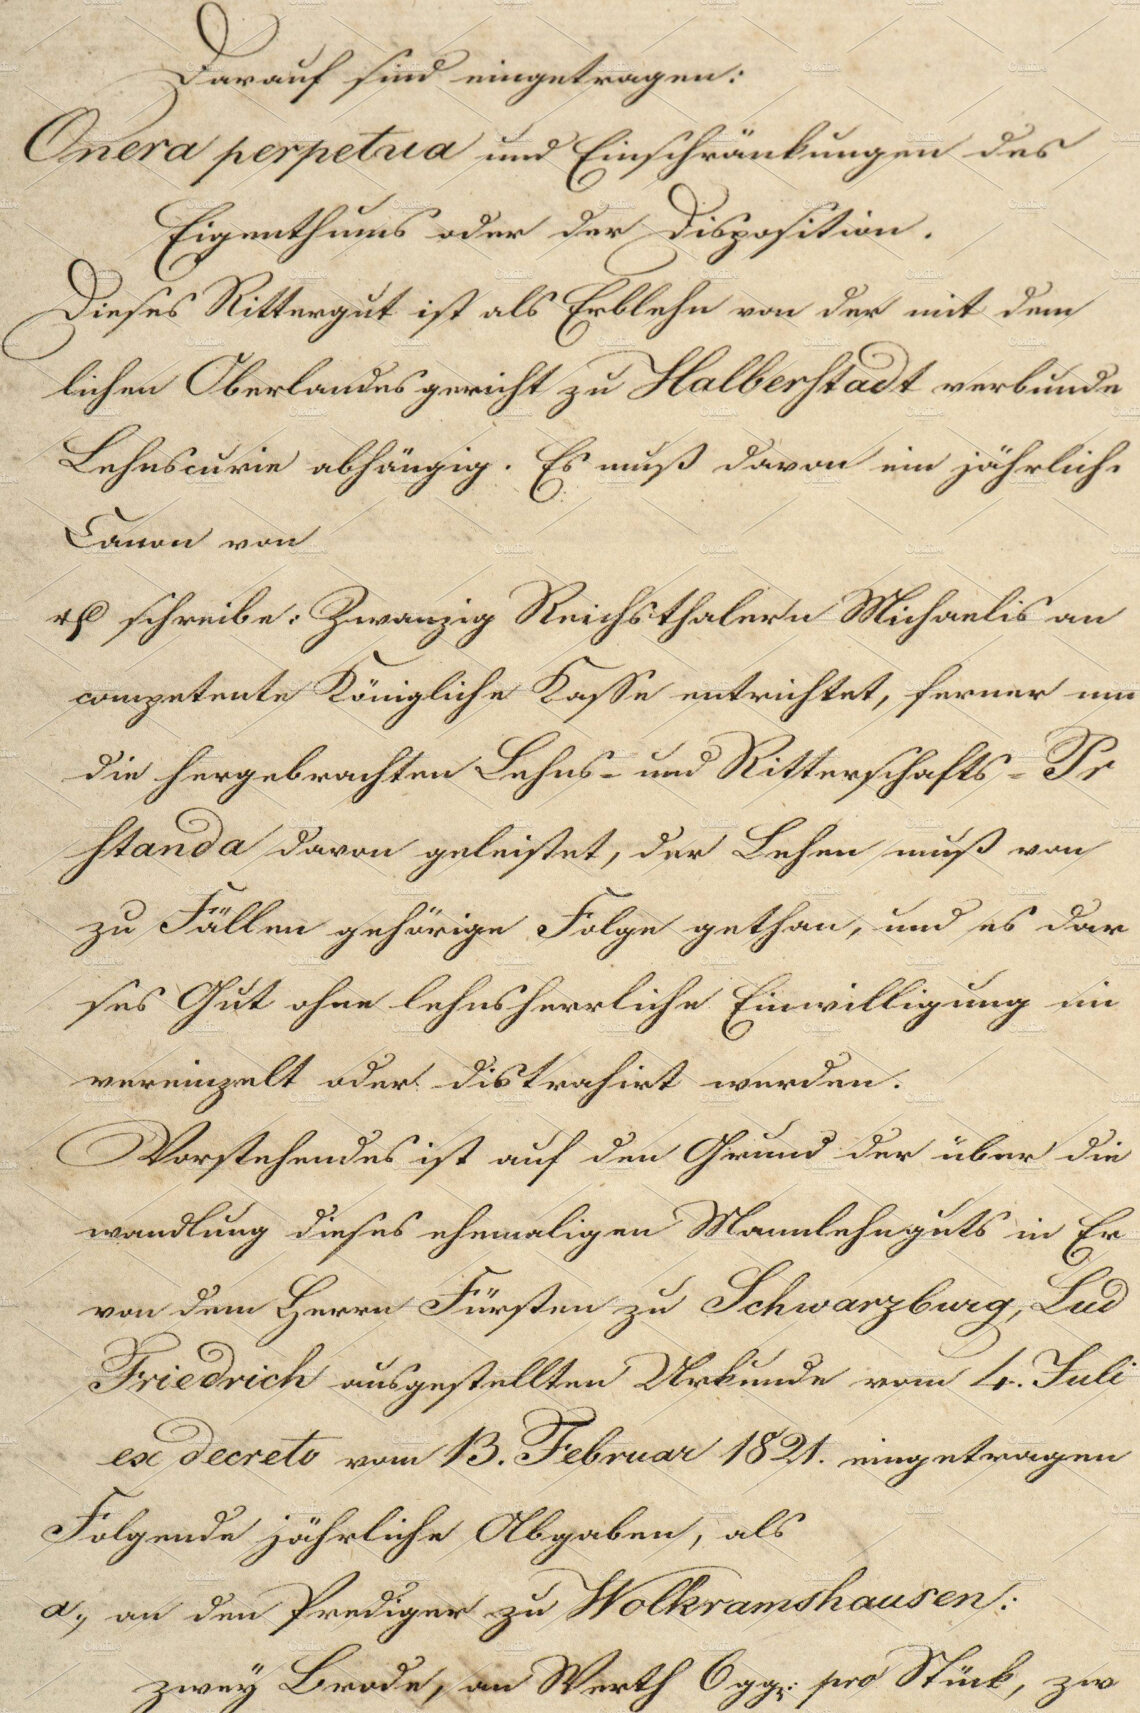 Darauf sind eingetragen:
Onera perpetua und Einschränkungen des
Eigenthums oder der Disposition.
Dieses Rittergut ist als Erblehn von der mit dem
lichen Oberlandesgericht zu Halberstadt verbunde
Lehnscurie abhängig. Es muß davon ein jährlich.
Canon von
schreibe: Zwanzig Reichsthalern Michaelis an
competente Königliche Kasse entrichtet, ferner
die hergebrachten Lehns- und Ritterschafts-Pr
standa davon geleistet, der Lehen muß von
zu Fällen gehörige Folge gethan, und es dar
ses Gut ohne lehnsherrliche Einwilligung
vereinzelt oder distrahirt werden.
Vorstehendes ist auf den Grund der über die
wandlung dieses ehemaligen Mannlehnguts in Er
von dem Herrn Fürsten zu Schwarzburg, Lud
Friedrich ausgestellten Urkunde vom 4. Juli
ex decreto vom 13. Februar 1821. eingetragen
Folgende jährliche Abgaben, als
a., an den Prediger zu Wolkramshausen:
zwey Brode, an Werth 6 ggr: pro Stück, zw